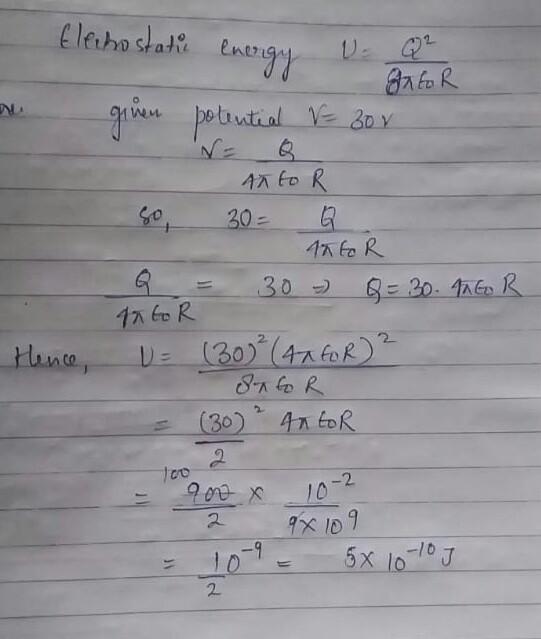 Electrostatic energy U = Q²/8πε₀R
given potential V = 30 v
V = Q/4πε₀R
so, 30 = Q/4πε₀R
Q/4πε₀R = 30 ⇒ Q = 30. 4πε₀R
Hence, U = (30)² (4πε₀R)²/8πε₀R
= (30)²/2 4πε₀R
= 100 900/2 × 10⁻²/9×10⁹
= 10⁻⁹/2 = 5× 10⁻¹⁰ J